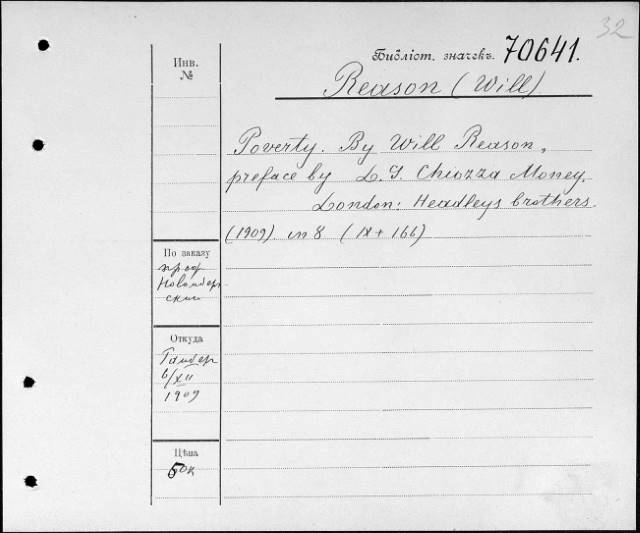 32
Инв.
№
Библіот. значекъ. 70641.
Reason (Will)
Poverty. By Will Reason,
preface by L. G. Chiozza Money.
London: Headleys brothers.
(1909). in 8 (IX + 166)
По заказу
проф
Откуда
6/XII
1909
Цѣна
50к